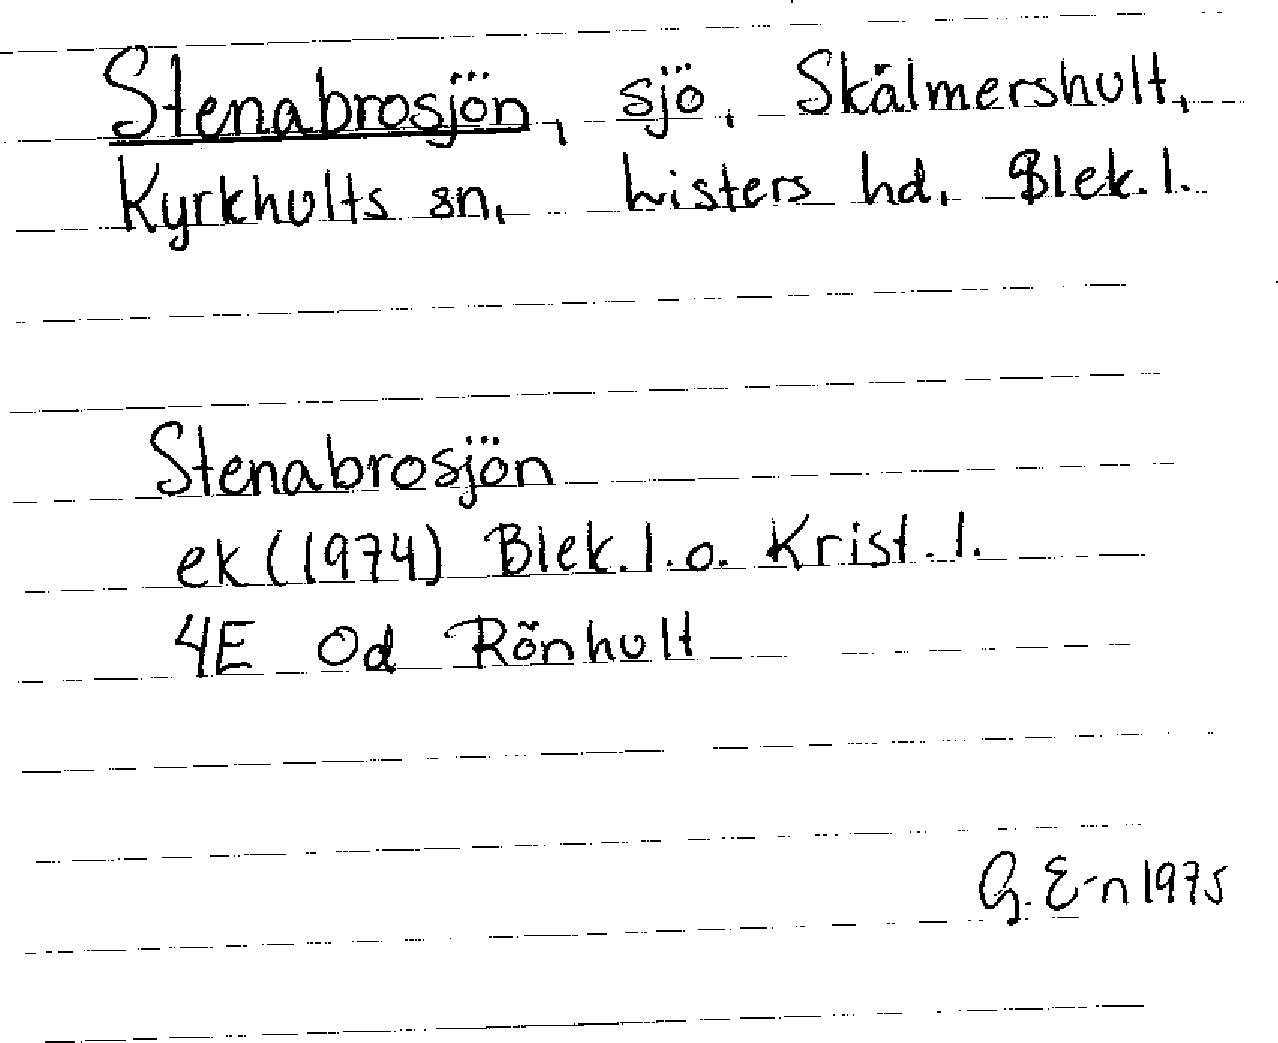 Stenabrosjön, sjö, Skälmershult,
Kyrkhults sn, Listers hd, Blek. l.
Stenabrosjön
ek (1974) Blek. l. o. Krist. l.
4E 0d Rönhult
G. E-n 1975